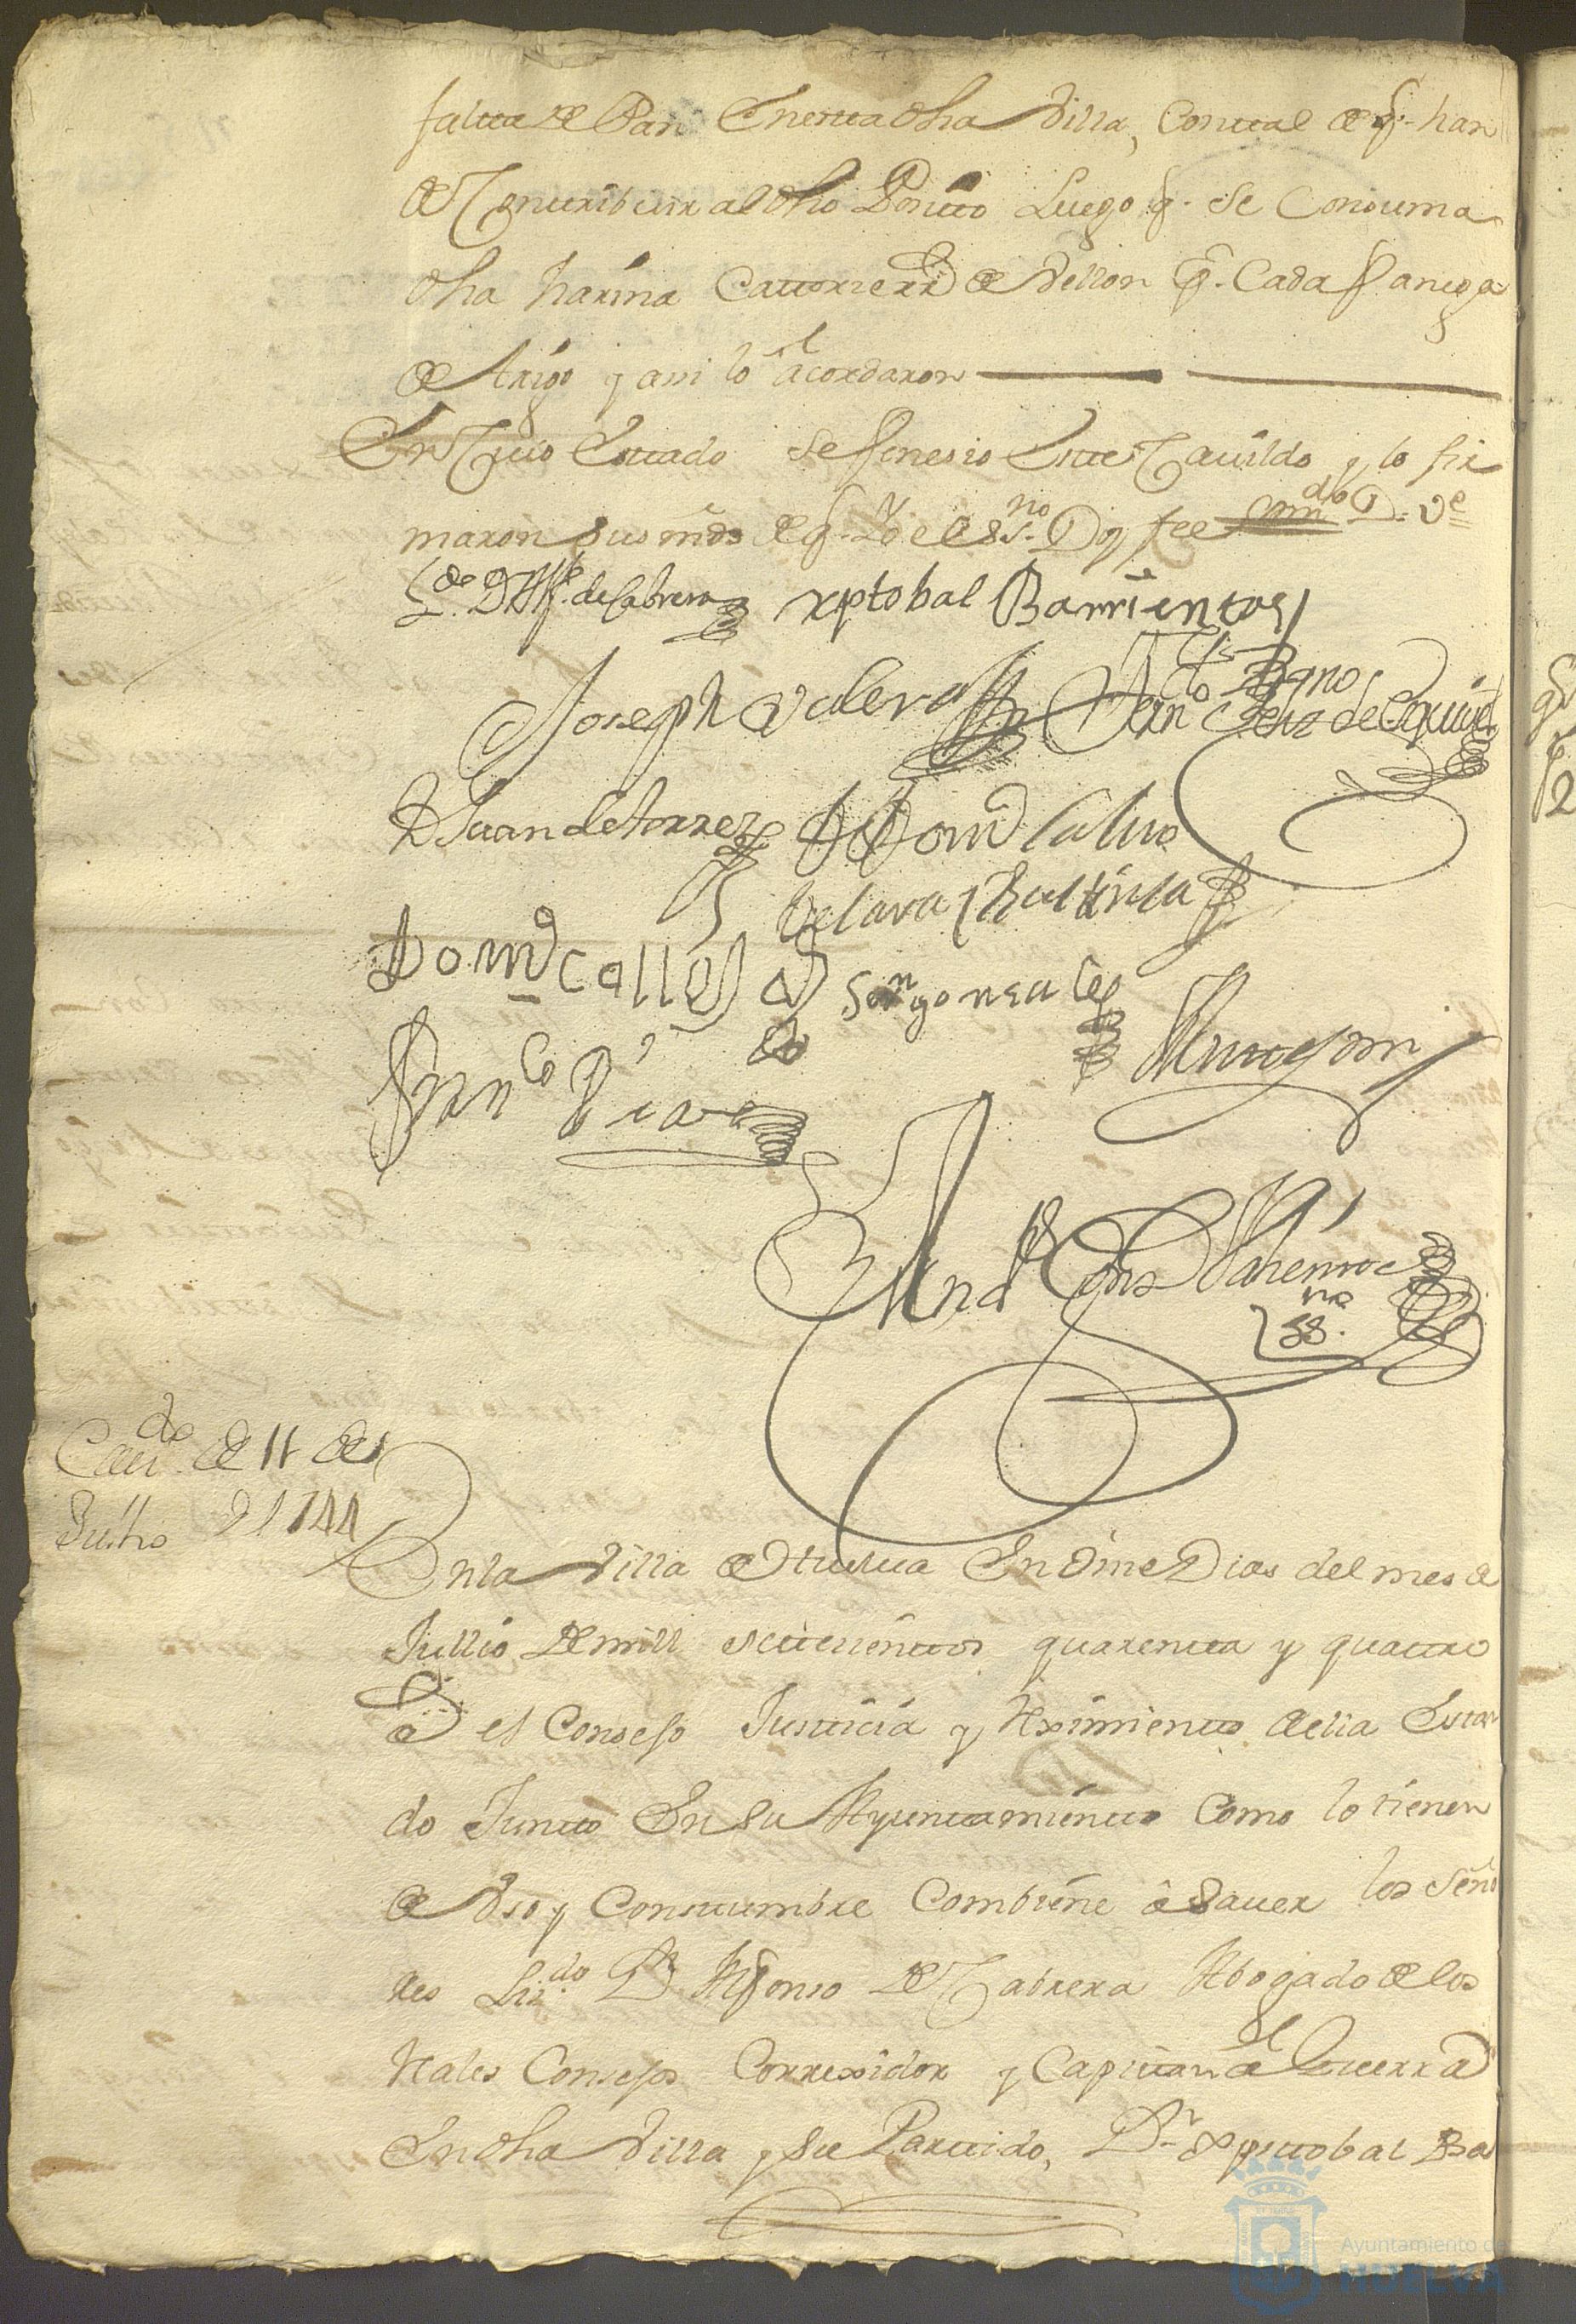 falta de Pan En esta dha Villa, Con tal de q.e han
de Contribuir al dho Posito Luego q.e Se Consuma
dha harina Catorze rr.s de Vellon p.r Cada fanega
de trigo y assi lo acordaron
En Cuio Estado Se feneció Este Cavildo y lo fir
maron sus mrds de q. Yo el Ess.no Doy fee
L.do D. Alf.o de Cabrera xptobal Barrientos
Joseph Valera
Fern.o
D Juan de torrez Dom.o Calvo
De lara
Dom.o Calles
Seb.n gonsales
Fran.co Dias
And.s Gons
ess.no
Cavi.do de 11 de
Jullio de 1744
En la Villa de Huelva En Onze Dias del mes de
Jullio de mill setecientos quarenta y quatro
a.s el Consejo Justicia y Reximiento della Estan
do Junto En su Ayuntamiento Como lo tienen
de Vso y Constumbre Combiene â Saver los Seño
res Liz.do D.n Alfonso de Cabrera Abogado de los
Reales Consejos Correxidor y Capitan a Guerra
En dha Villa y su Partido, D.n Xptobal Ba
Ayuntamiento de
HUELVA